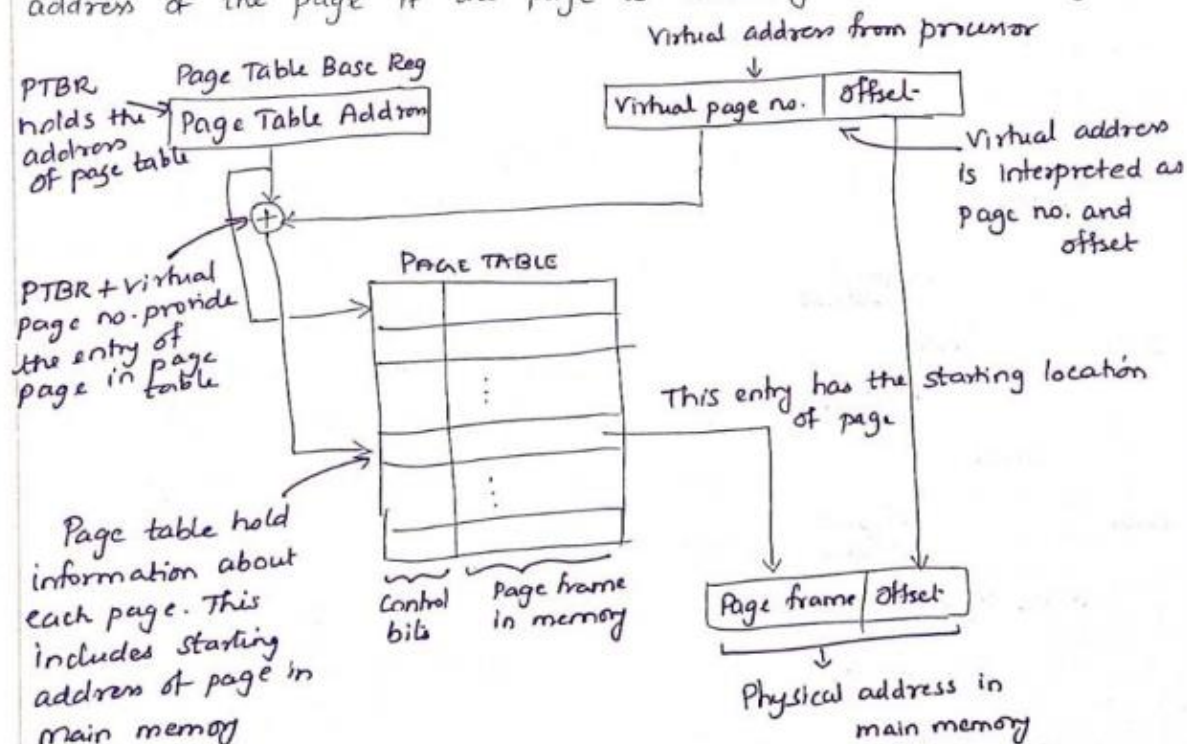 address of the page if the page is
Virtual address from processor
PTBR
holds the
address
of page table
Page Table Base Reg
Page Table Address
Virtual page no.
offset
Virtual address
is interpreted as
page no. and
offset
+
PTBR + virtual
page no. provide
the entry of
page in page
table
PAGE TABLE
This entry has the starting location
of page
Page table hold
information about
each page. This
includes starting
address of page in
main memory
Control
bits
Page frame
in memory
Page frame
offset
Physical address in
main memory